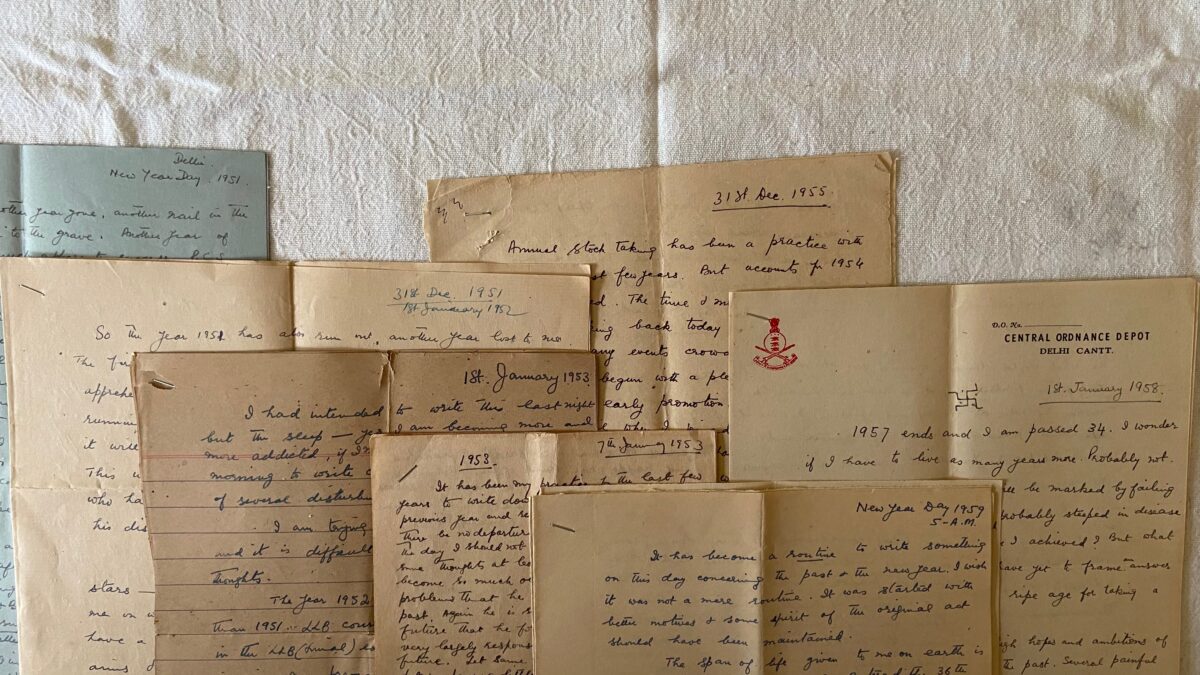 Delhi
New Year Day, 1951.
other year gone, another nail in the
to the grave. Another year of
31st Dec. 1955
Annual Stock taking has been a practice with
st few years. But accounts for 1954
ed. The time &
ing back today
any events crowd
begun with a
early promotion
31st Dec. 1951
1st January 1952
So the year 1951 has also run out, another year lost to me.
The
appreh
it
This
who ha
his dis
stars —
me on
have a
aims
1st. January 1953
I had intended to write this last night
but the sleep —
I am becoming more and
more addicted, if I
morning to write
of several disturb
I am trying
and it is difficult
thoughts.
The year 1952
than 1951 — LLB cour
in the LLB (Final)
1953
7th January 1953
It has been my practice in the last few
years to write down
previous year and
there be no departure
the day I should not
some thoughts at
become so much
problems that he
past. Again he is
future that he
very largely respons
future. Let same
D.O. No.
CENTRAL ORDNANCE DEPOT
DELHI CANTT.
1st. January 1958.
1957 ends and I am passed 34. I wonder
if I have to live as many years more. Probably not.
be marked by failing
probably steeped in disease
I achieved? But what
have yet to frame answer
ripe age for taking a
high hopes and ambitions of
the past. Several painful
New Year Day 1959
5-A.M.
It has become a routine to write something
on this day concerning the past & the new year. I wish
it was not a mere routine. It was started with
better motives & some spirit of the original act
should have been maintained.
The span of life given to me on earth is
36th